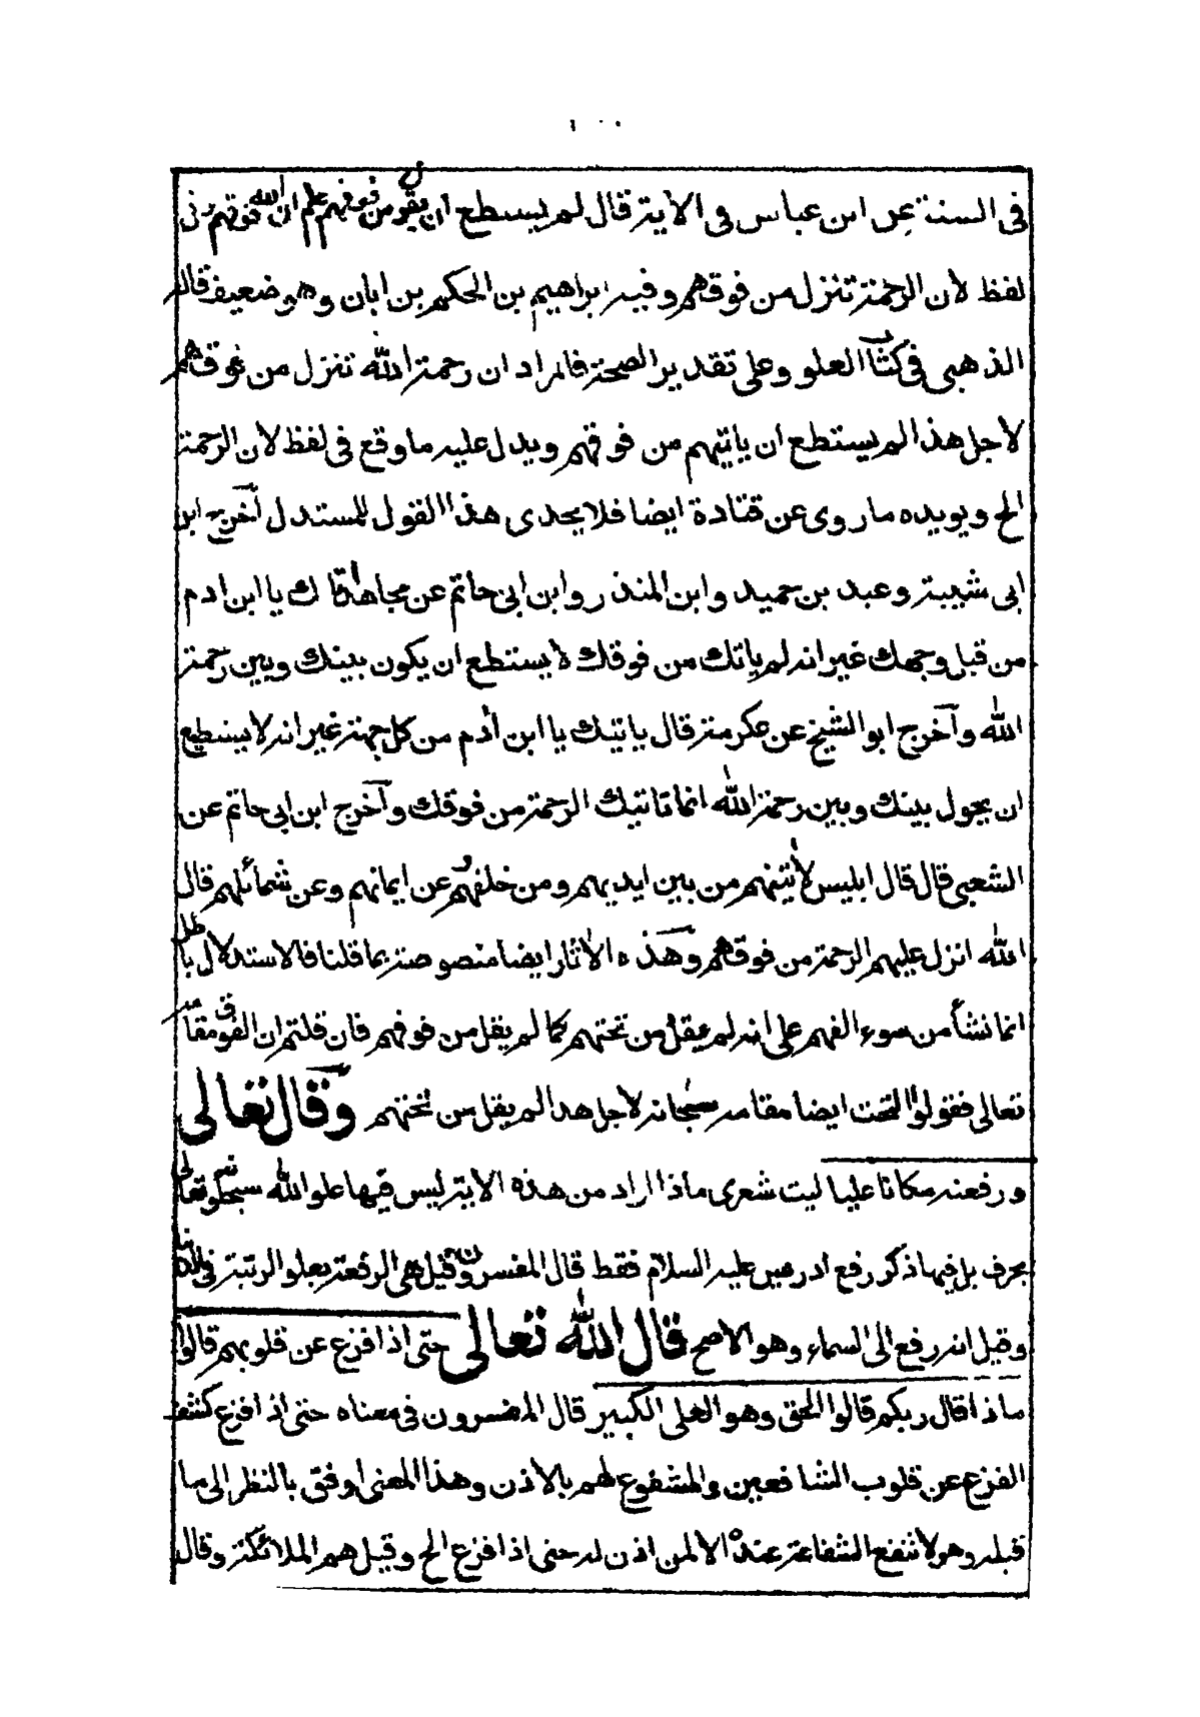 ١٠٠
في السنة عن ابن عباس في الاية قال لم يستطع ان يقول من فوقهم علم ان الله فوقهم وفي
لفظ لان الرحمة تنزل من فوقهم وفيه ابراهيم بن الحكم بن ابان وهو ضعيف قاله
الذهبي في كتاب العلو وعلى تقدير الصحة فالمراد ان رحمة الله تنزل من فوقهم
لاجل هذا لم يستطع ان ياتيهم من فوقهم ويدل عليه ما وقع في لفظ لان الرحمة
الخ ويويده ما روى عن قتادة ايضا فلا يجدى هذا القول للمستدل آخرج ابن
ابى شيبة وعبد بن حميد وابن المنذر وابن ابى حاتم عن مجاهد قال ياتك يا ابن ادم
من قبل وجهك غير انه لم ياتك من فوقك لا يستطع ان يكون بينك وبين رحمة
الله وآخرج ابو الشيخ عن عكرمة قال ياتيك يا ابن أدم من كل جهة غير انه لا يستطيع
ان يحول بينك وبين رحمة الله انما تاتيك الرحمة من فوقك وآخرج ابن ابى حاتم عن
الشعبى قال قال ابليس لأتينهم من بين ايديهم ومن خلفهم وعن ايمانهم وعن شمائلهم قال
الله انزل عليهم الرحمة من فوقهم وهذه الأثار ايضا منصوصة بما قلنا فالاستدلال باطل
انما نشأ من سوء الفهم على انه لم يقل من تحتهم كما لم يقل من فوقهم فان قلتم ان الفوق مقامه
تعالى فقولوا التحت ايضا مقامه سبحانه لاجل هذا لم يقل من تحتهم وقال تعالى
ورفعنه مكانا عليا ليت شعرى ماذا اراد من هذه الاية ليس فيها علو الله سبحنه وتعالى
بحرف بل فيها ذكر رفع ادريس عليه السلام فقط قال المفسرون وقيل هى الرفعة بعلو الرتبة في الدنيا
وقيل انه رفع الى السماء وهو الاصح قال الله تعالى حتى اذا فزع عن قلوبهم قالوا
ماذا قال ربكم قالوا الحق وهو العلى الكبير قال المفسرون في معناه حتى اذا فزع كشف
الفزع عن قلوب الشافعين والمشفوع لهم بالاذن وهذا المعنى اوفق بالنظر الى ما
قبله وهو لا تنفع الشفاعة عنده الا لمن اذن له حتى اذا فزع الخ وقيل هم الملائكة وقال